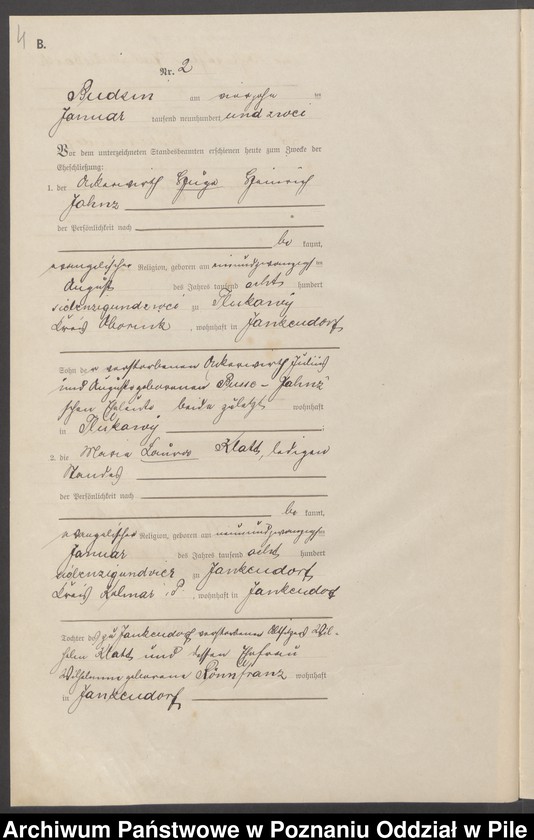 4
B.
Nr. 2
Budsin am vierzehn ten
Januar tausend neunhundert und zwei
Vor dem unterzeichneten Standesbeamten erschienen heute zum Zwecke der
Eheschließung:
1. der Ackerwirth Hugo Heinrich
Jahnz
der Persönlichkeit nach
be kannt,
evangelischer Religion, geboren am einundzwanzigsten
August des Jahres tausend acht hundert
siebenzigundzwei zu Tlukawy
Kreis Obornik, wohnhaft in Jankendorf
Sohn der verstorbenen Ackerwirth Julius
und Auguste geborenen Busse-Jahnz
schen Eheleute beide zuletzt wohnhaft
in Tlukawy
2. die Maria Laura Klatt, ledigen
Standes
der Persönlichkeit nach
be kannt,
evangelischer Religion, geboren am neunundzwanzigsten
Januar des Jahres tausend acht hundert
siebenzigundvier zu Jankendorf
Kreis Kolmar i. P., wohnhaft in Jankendorf
Tochter des zu Jankendorf verstorbenen Altsitzers Wil-
helm Klatt und dessen Ehefrau
Wilhelmine geborene Rönnfranz wohnhaft
in Jankendorf
Archiwum Państwowe w Poznaniu Oddział w Pile